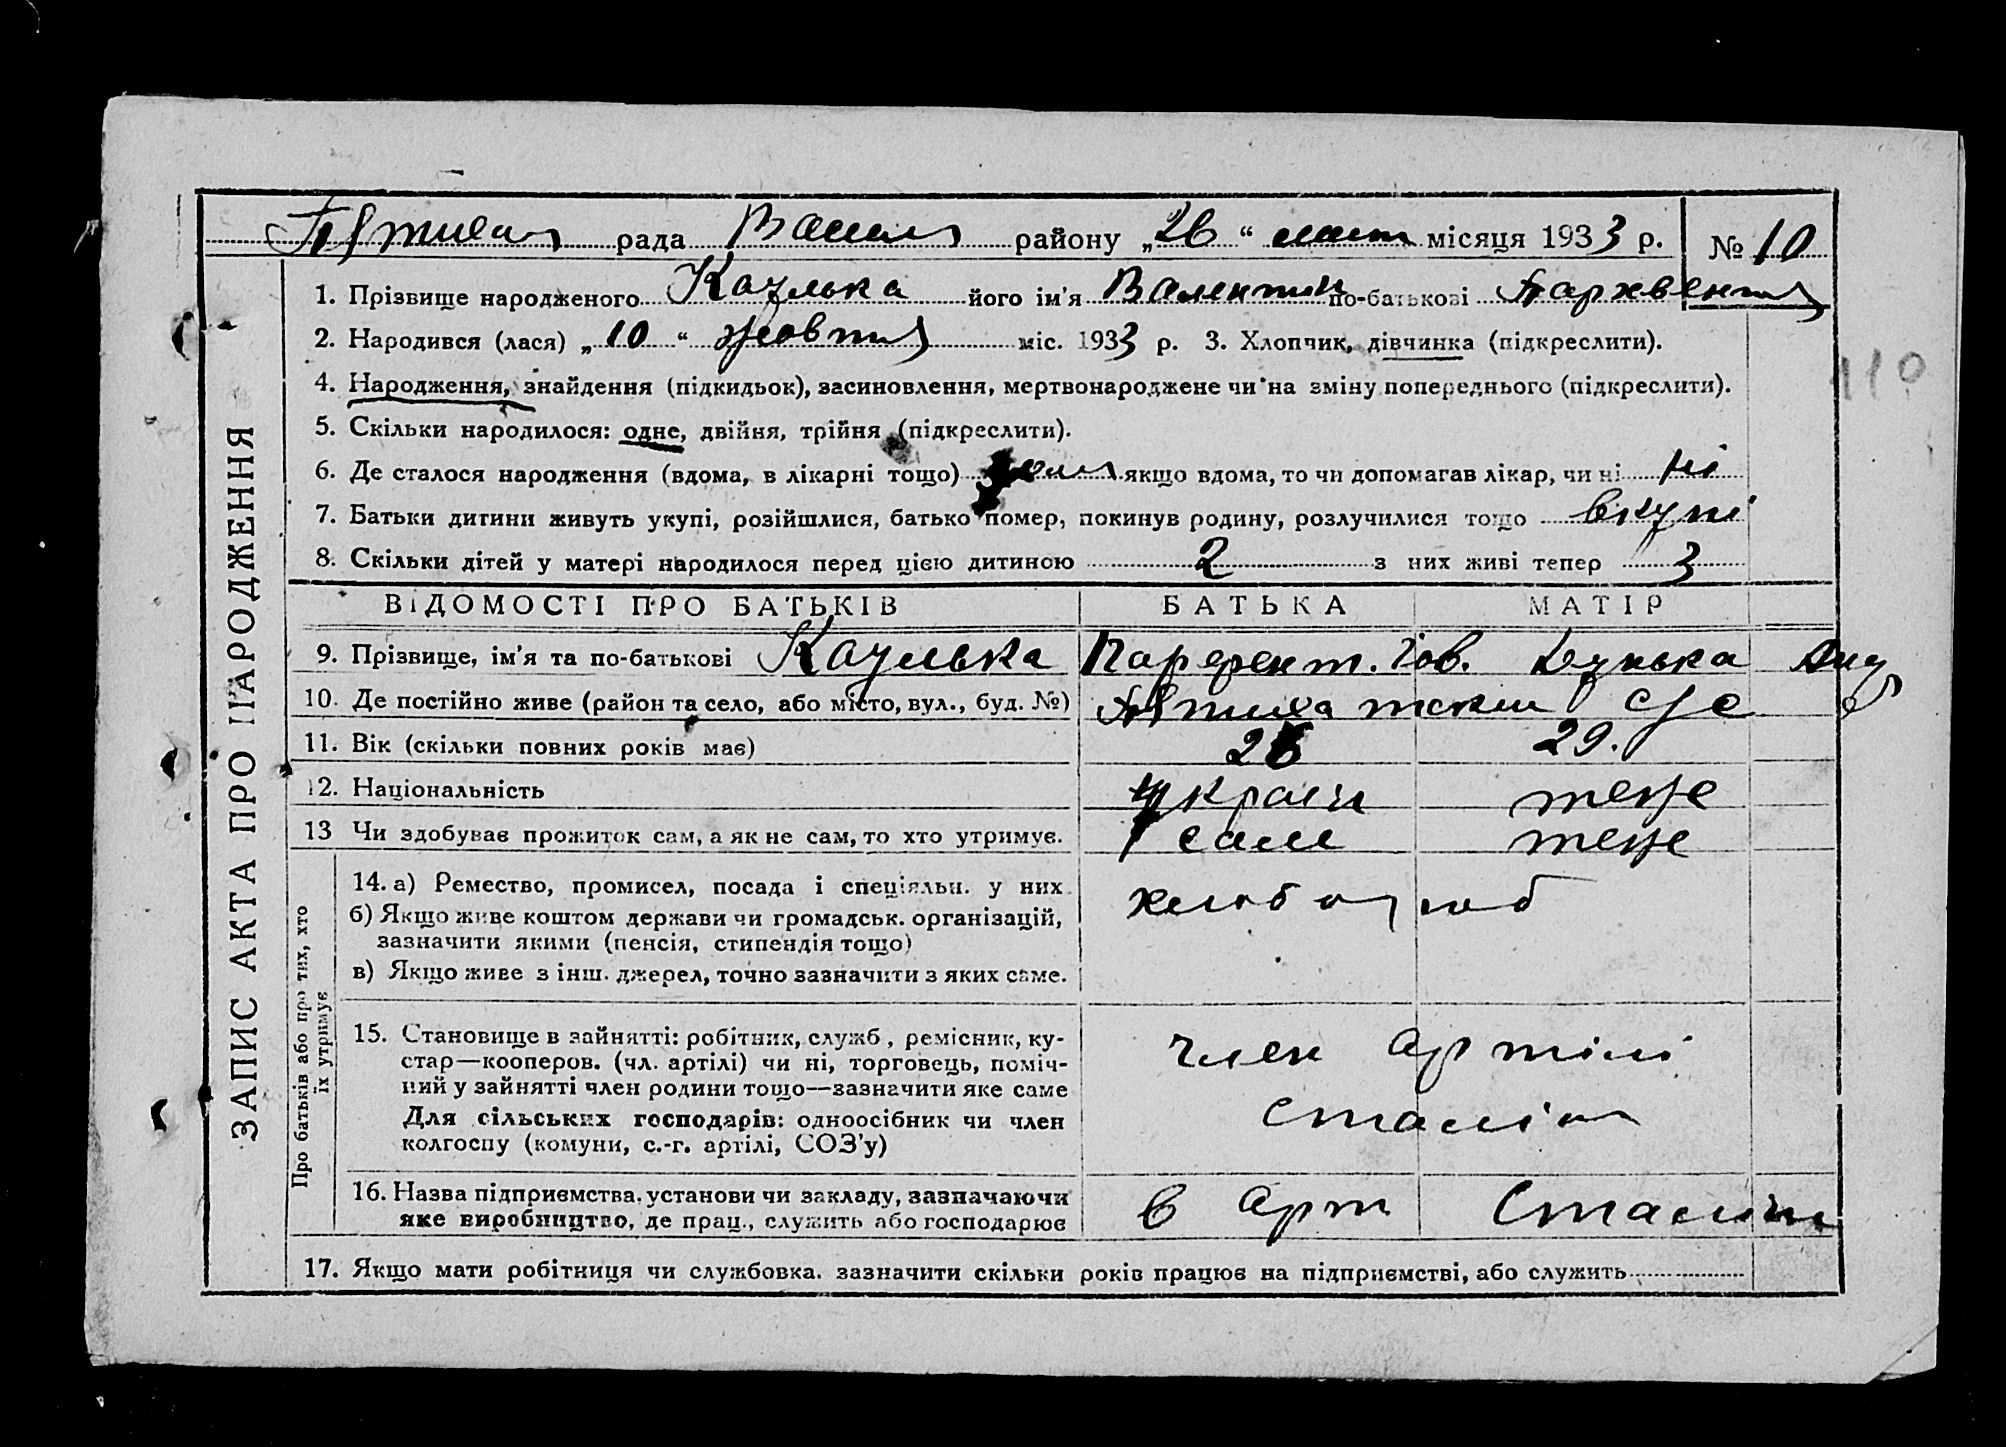 рада район „26“ лист місяця 1933 р. № 10
1. Прізвище народженого його ім'я Валентин по-батькові
2. Народився (лася) „10“ жовтня міс. 1933 р. 3. Хлопчик, дівчинка (підкреслити).
4. Народження, знайдення (підкидьок), засиновлення, мертвонароджене чи на зміну попереднього (підкреслити).
5. Скільки народилося: одне, двійня, трійня (підкреслити).
6. Де сталося народження (вдома, в лікарні тощо) якщо вдома, то чи допомагав лікар, чи ні ні
7. Батьки дитини живуть укупі, розійшлися, батько помер, покинув родину, розлучилися тощо вкупі
8. Скільки дітей у матері народилося перед цією дитиною 2 з них живі тепер 3
ВІДОМОСТІ ПРО БАТЬКІВ БАТЬКА МАТІР
9. Прізвище, ім'я та по-батькові
10. Де постійно живе (район та село, або місто, вул., буд. №)
11. Вік (скільки повних років має) 29.
12. Національність україн теже
13 Чи здобуває прожиток сам, а як не сам, то хто утримує. сам теже
14. а) Ремество, промисел, посада і спеціяльн. у них
б) Якщо живе коштом держави чи громадськ. організацій,
зазначити якими (пенсія, стипендія тощо)
в) Якщо живе з інш. джерел, точно зазначити з яких саме.
15. Становище в зайнятті: робітник, служб, ремісник, ку-
стар—кооперов. (чл. артілі) чи ні, торговець, поміч-
ний у зайнятті член родини тощо—зазначити яке саме
член артілі
Для сільських господарів: одноосібник чи член
колгоспу (комуни, с.-г. артілі, СОЗ'у)
Сталін
16. Назва підприємства, установи чи закладу, зазначаючи
яке виробництво, де прац., служить або господарює
в арт Сталін
17. Якщо мати робітниця чи службовка, зазначити скільки років працює на підприємстві, або служить
ЗАПИС АКТА ПРО НАРОДЖЕННЯ
Про батьків або про тих, хто
їх утримує
110